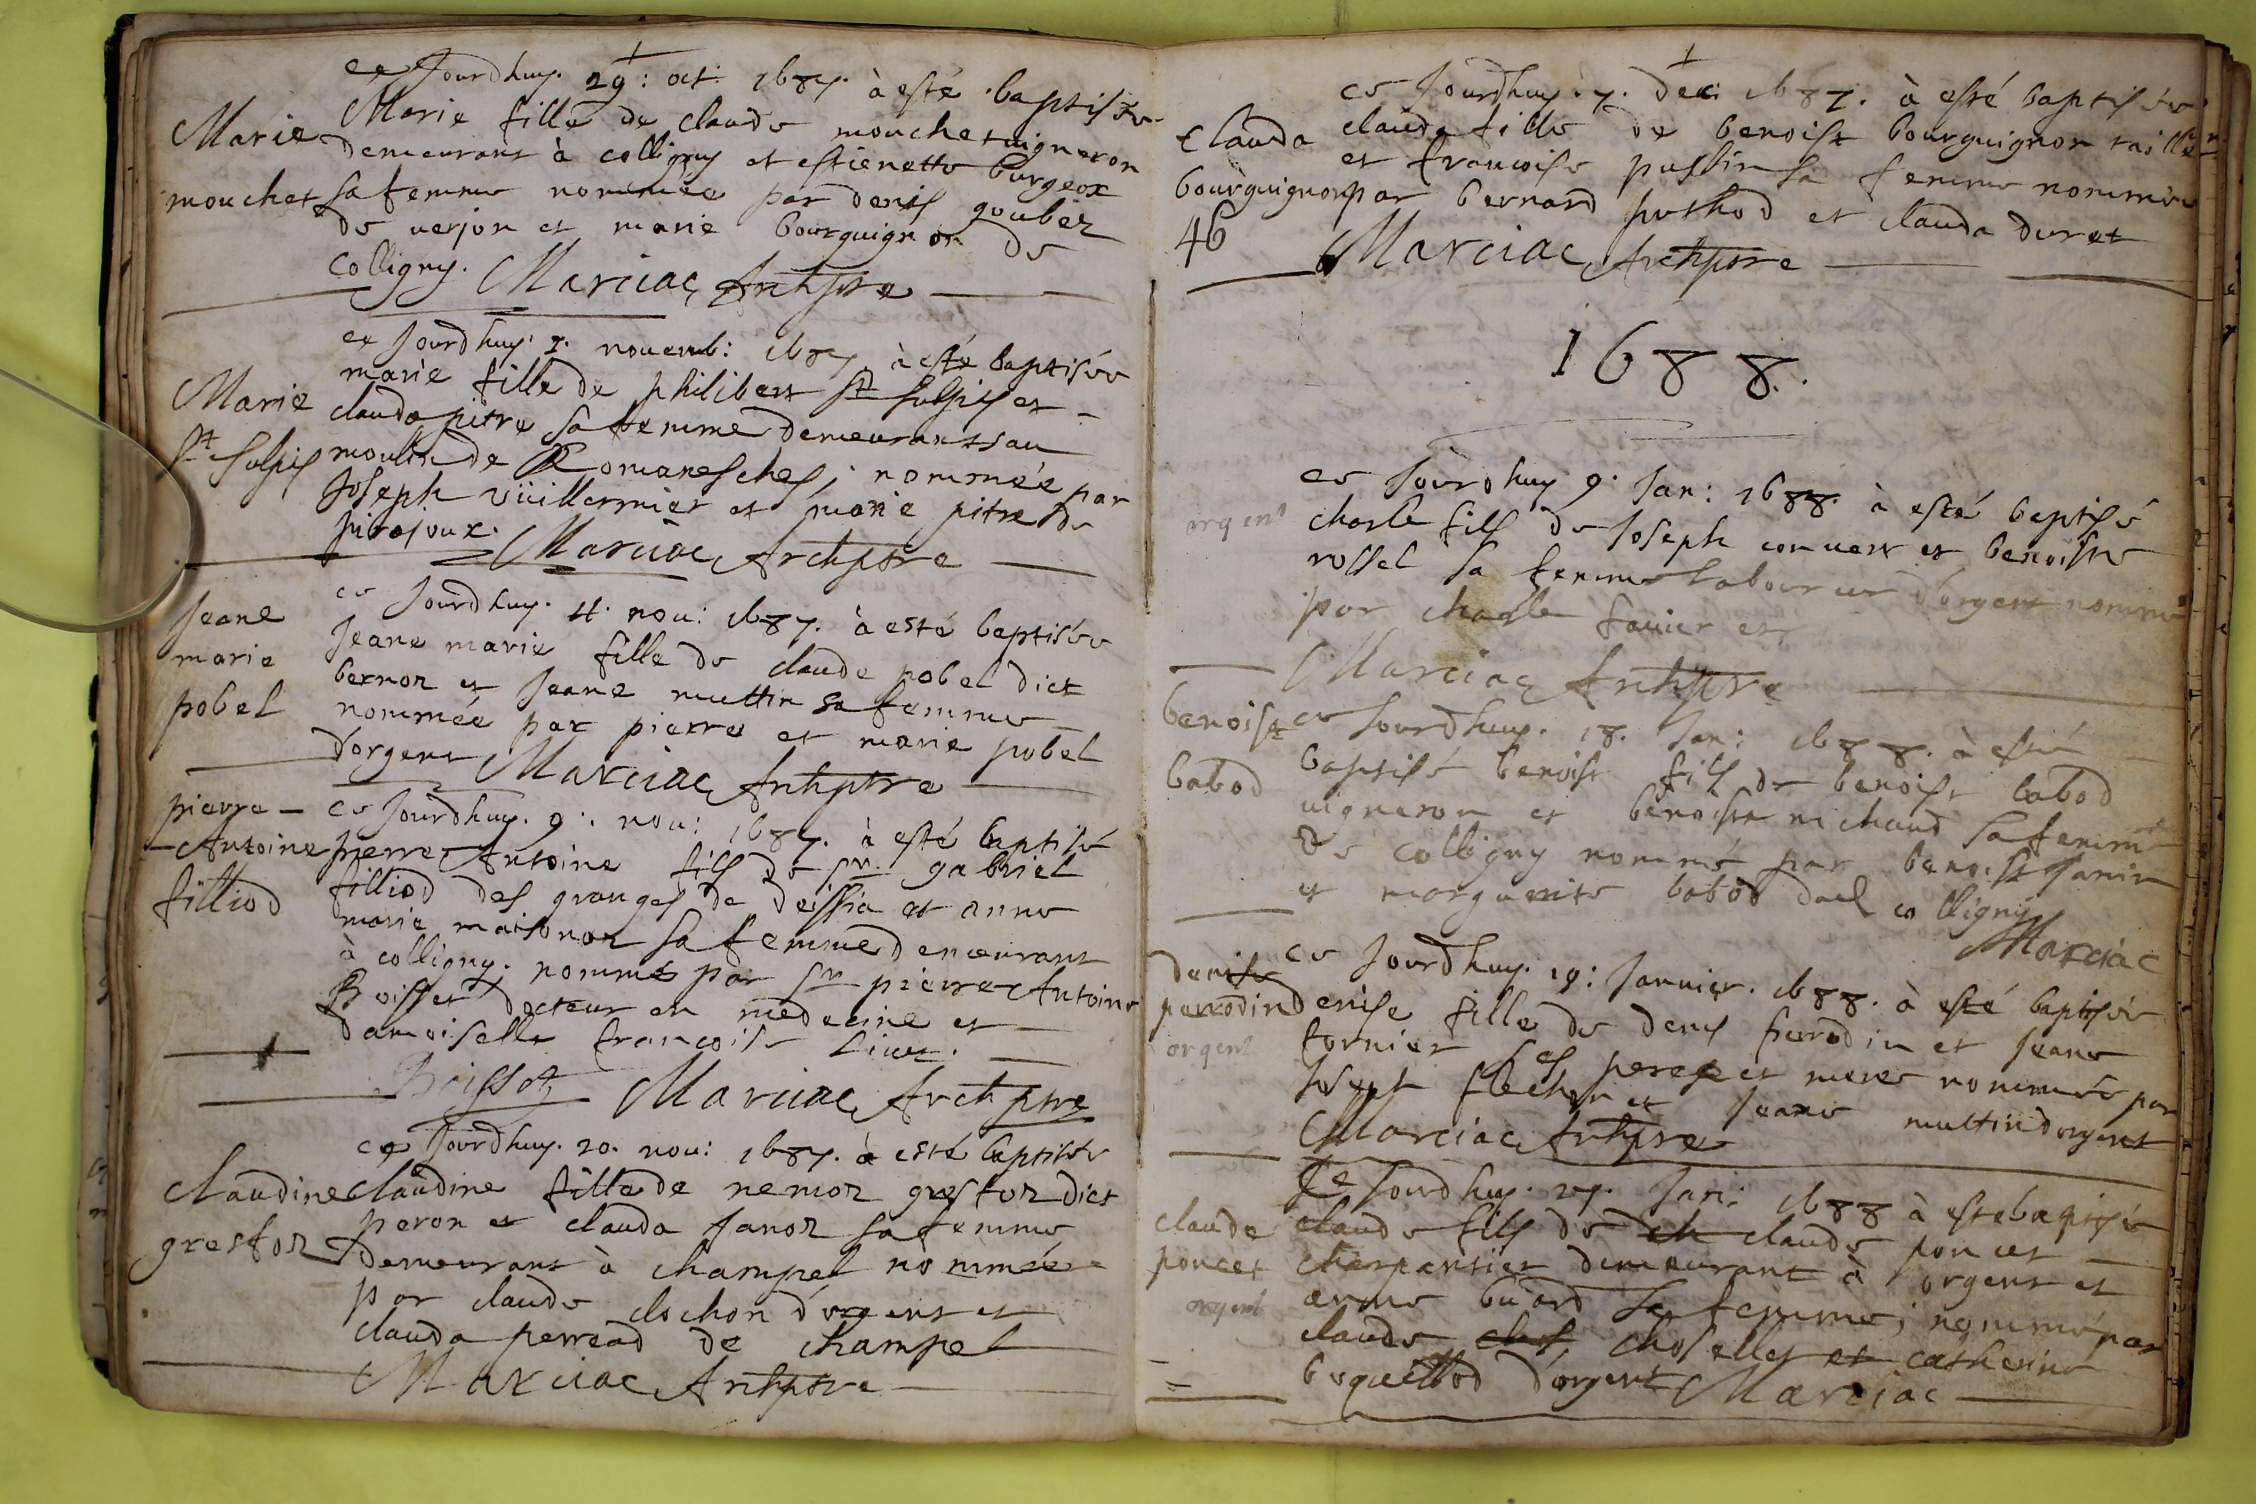 ce Jourdhuy. 29: oct: 1687. à esté baptisée
Marie fille de claude mouchet uigneron
Marie
demeurant à colligny et estienette burgeox
mouchet
sa femme nommée par denis goubez
de uerjon et marie bourguignon de
Colligny. Marciac Archptre
ce Jourdhuy. 7. nouemb: 1687 à esté baptisée
marie fille de philibert St Sulpis et
Marie
clauda pitre sa femme demeurants au
St Sulpis
moulin de Romanesches; nommée par
Joseph vüillermier et marie pitre de
pirajoux. Marciac Archptre
Jeane
marie
pobel
ce Jourdhuy. 4. nou: 1687. à esté baptisée
Jeane marie fille de claude pobel dict
bernon et Jeane muttin sa femme
nommée par pierre et marie pobel
dorgent Marciac Archptre
pierre
Antoine
filliod
ce Jourdhuy. 9. nou: 1687. à esté baptisé
pierre Antoine fils de sr. gabriel
filliod des granges de deissia et anne
marie maisonon sa femme demeurant
à colligny. nommé par sr pierre Antoine
Boisset docteur en medecine et
damoiselle francoise
Boissot Marciac Archptre
ce Jourdhuy. 20. nou: 1687. à esté baptisée
Claudine
claudine fille de nemoz grosfoz dict
peron et clauda Janoz sa femme
demeurant à champel nommée
par claude clochon d'orgent et
clauda perread de champel
Marciac Archptre
ce Jourdhuy. 7. dec: 1687. à esté baptisée
clauda
clauda fille de benoist bourguignon
bourguignon
et francoise pussin sa femme nommée
par bernard puthod et clauda duret
46
Marciac Archptre
1688.
ce Jourdhuy 9. Jan: 1688. à esté baptisé
orgent
charle fils de Joseph conuert et benoiste
rossel sa femme laboureur d'orgent nommé
par charle fauier et
Marciac Archptre
benoist
babod
ce Jourdhuy. 18. Jan: 1688. à esté
baptisé benoist fils de benoist babod
uigneron et benoiste michaud sa femme
de colligny nommé par benoist Janin
et marguerite babod dud colligny
Marciac
denise
perrodin
orgent
ce Jourdhuy. 19: Januier. 1688. à esté baptisée
denise fille de denis perrodin et Jeane
fornier ses peres et meres nommée par
Joseph flechon et Jeane muttin dorgent
Marciac Archptre
claude
poncet
orgent
Ce Jourdhuy. 27. Jan: 1688 à esté baptisé
claude fils de claude poncet
charpentier demeurant à orgent et
anne buard sa femme; nommé par
claude choselles et catherine
boqueillod d'orgent Marciac